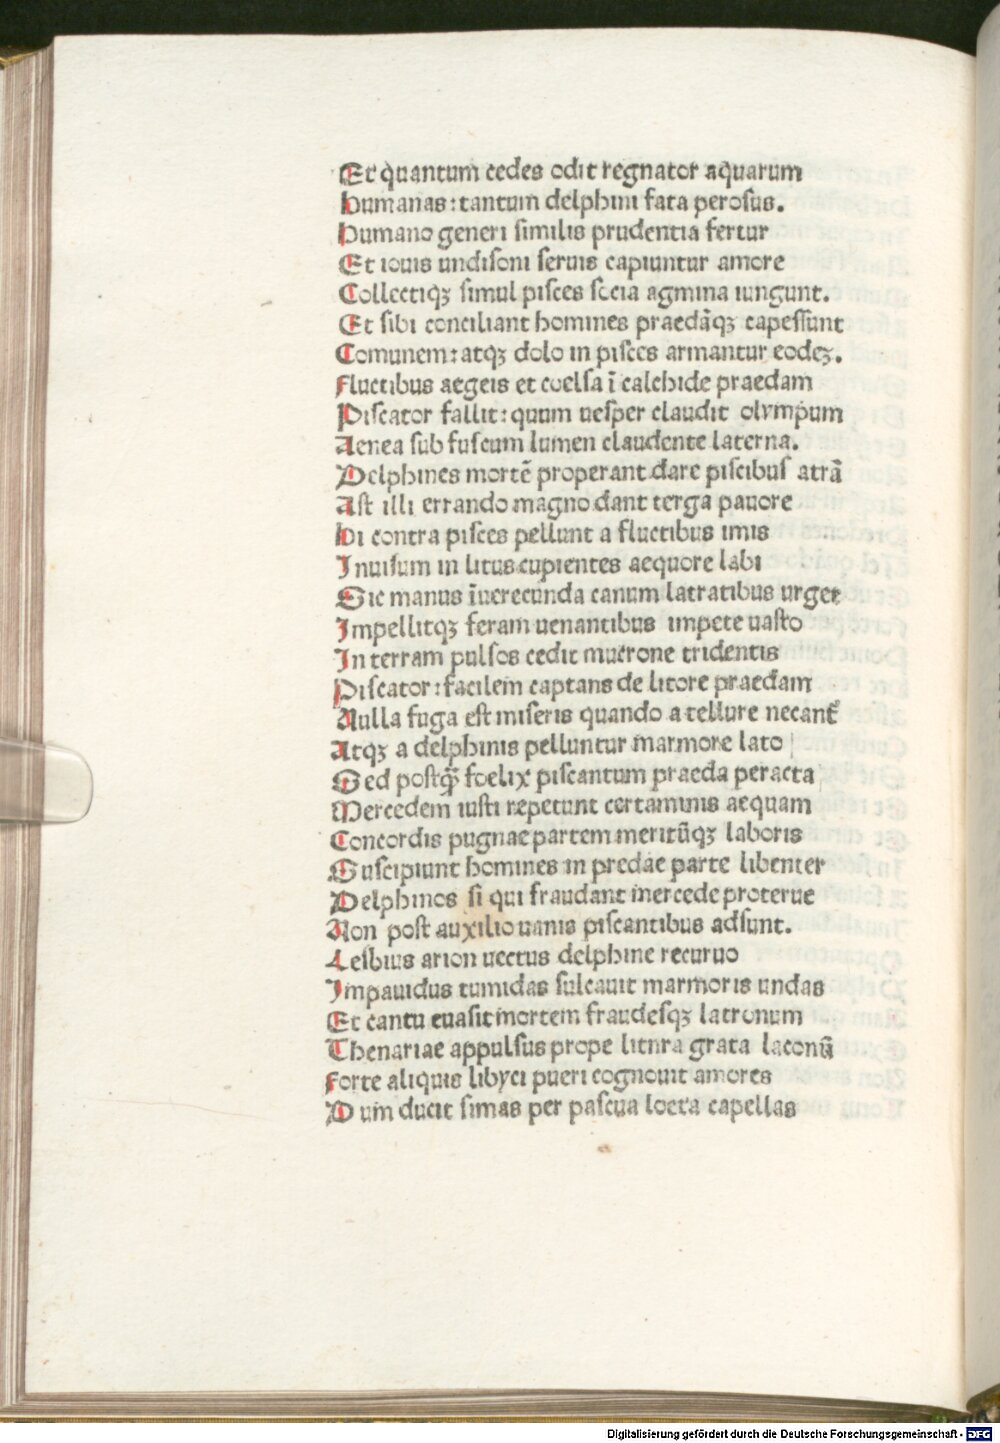 Et quantum cedes odit regnator aquarum
Humanas: tantum delphini fata perosus.
Humano generi similis prudentia fertur
Et iouis undisoni seruis capiuntur amore
Collectiqʒ simul pisces socia agmina iungunt.
Et sibi conciliant homines praedāqʒ capessunt
Comunem: atqʒ dolo in pisces armantur eodeʒ.
Fluctibus aegeis et coelsa ī calchide praedam
Piscator fallit: quum uesper claudit olympum
Aenea sub fuscum lumen claudente laterna.
Delphines mortē properant dare piscibus atrā
Ast illi errando magno dant terga pauore
Hi contra pisces pellunt a fluctibus imis
Inuisum in litus cupientes aequore labi
Sic manus īuerecunda canum latratibus urget
Impellitqʒ feram uenantibus impete uasto
In terram pulsos cedit mucrone tridentis
Piscator: facilem captans de litore praedam
Nulla fuga est miseris quando a tellure necant᷑
Atqʒ a delphinis pelluntur marmore lato
Sed postq̄ foelix piscantum praeda peracta
Mercedem iusti repetunt certaminis aequam
Concordis pugnae partem meritūqʒ laboris
Suscipiunt homines in predae parte libenter
Delphinos si qui fraudant mercede proterue
Non post auxilio uanis piscantibus adsunt.
Lesbius arion uectus delphine recuruo
Impauidus tumidas sulcauit marmoris undas
Et cantu euasit mortem fraudesqʒ latronum
Thenariae appulsus prope litura grata laconū
Forte aliquis libyci pueri cognouit amores
Dum ducit simas per pascua loeta capellas
Digitalisierung gefördert durch die Deutsche Forschungsgemeinschaft - DFG